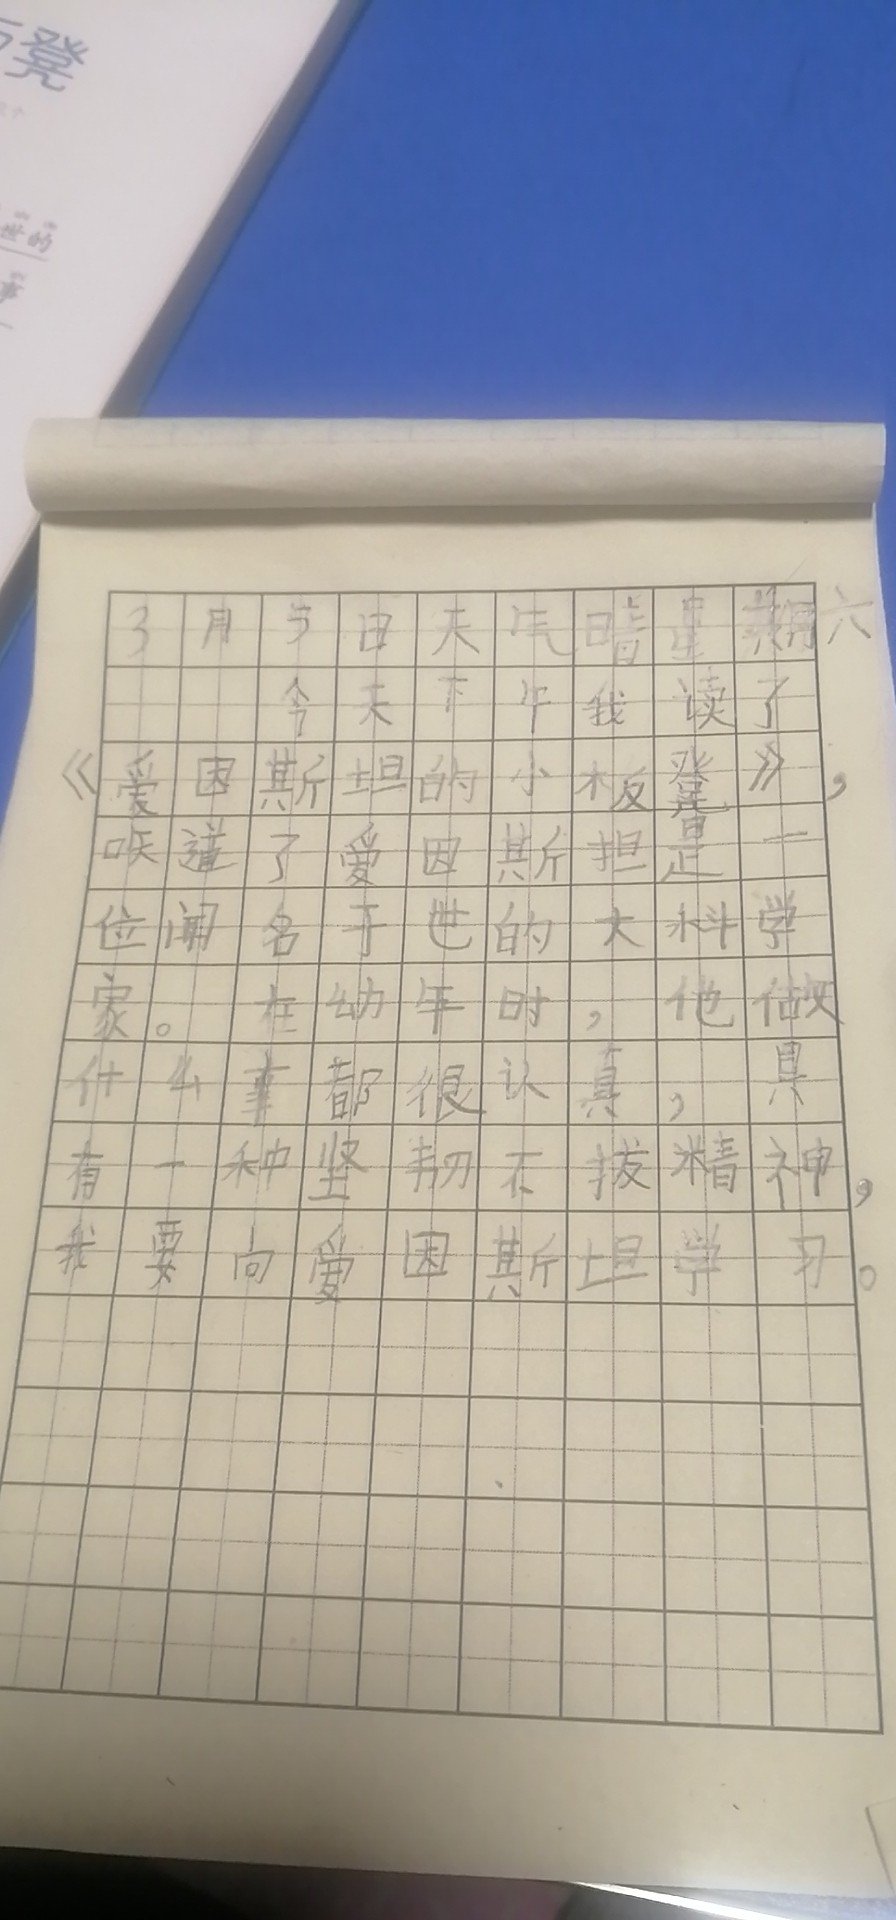 凳
世的
事
3月5日天气晴星期六
今天下午我读了
《爱因斯坦的小板凳》，
咲道了爱因斯担是一
位闻名于世的大科学
家。在幼年时，他做
什么事都很认真，具
有一种坚韧不拔精神，
我要向爱因斯坦学习。